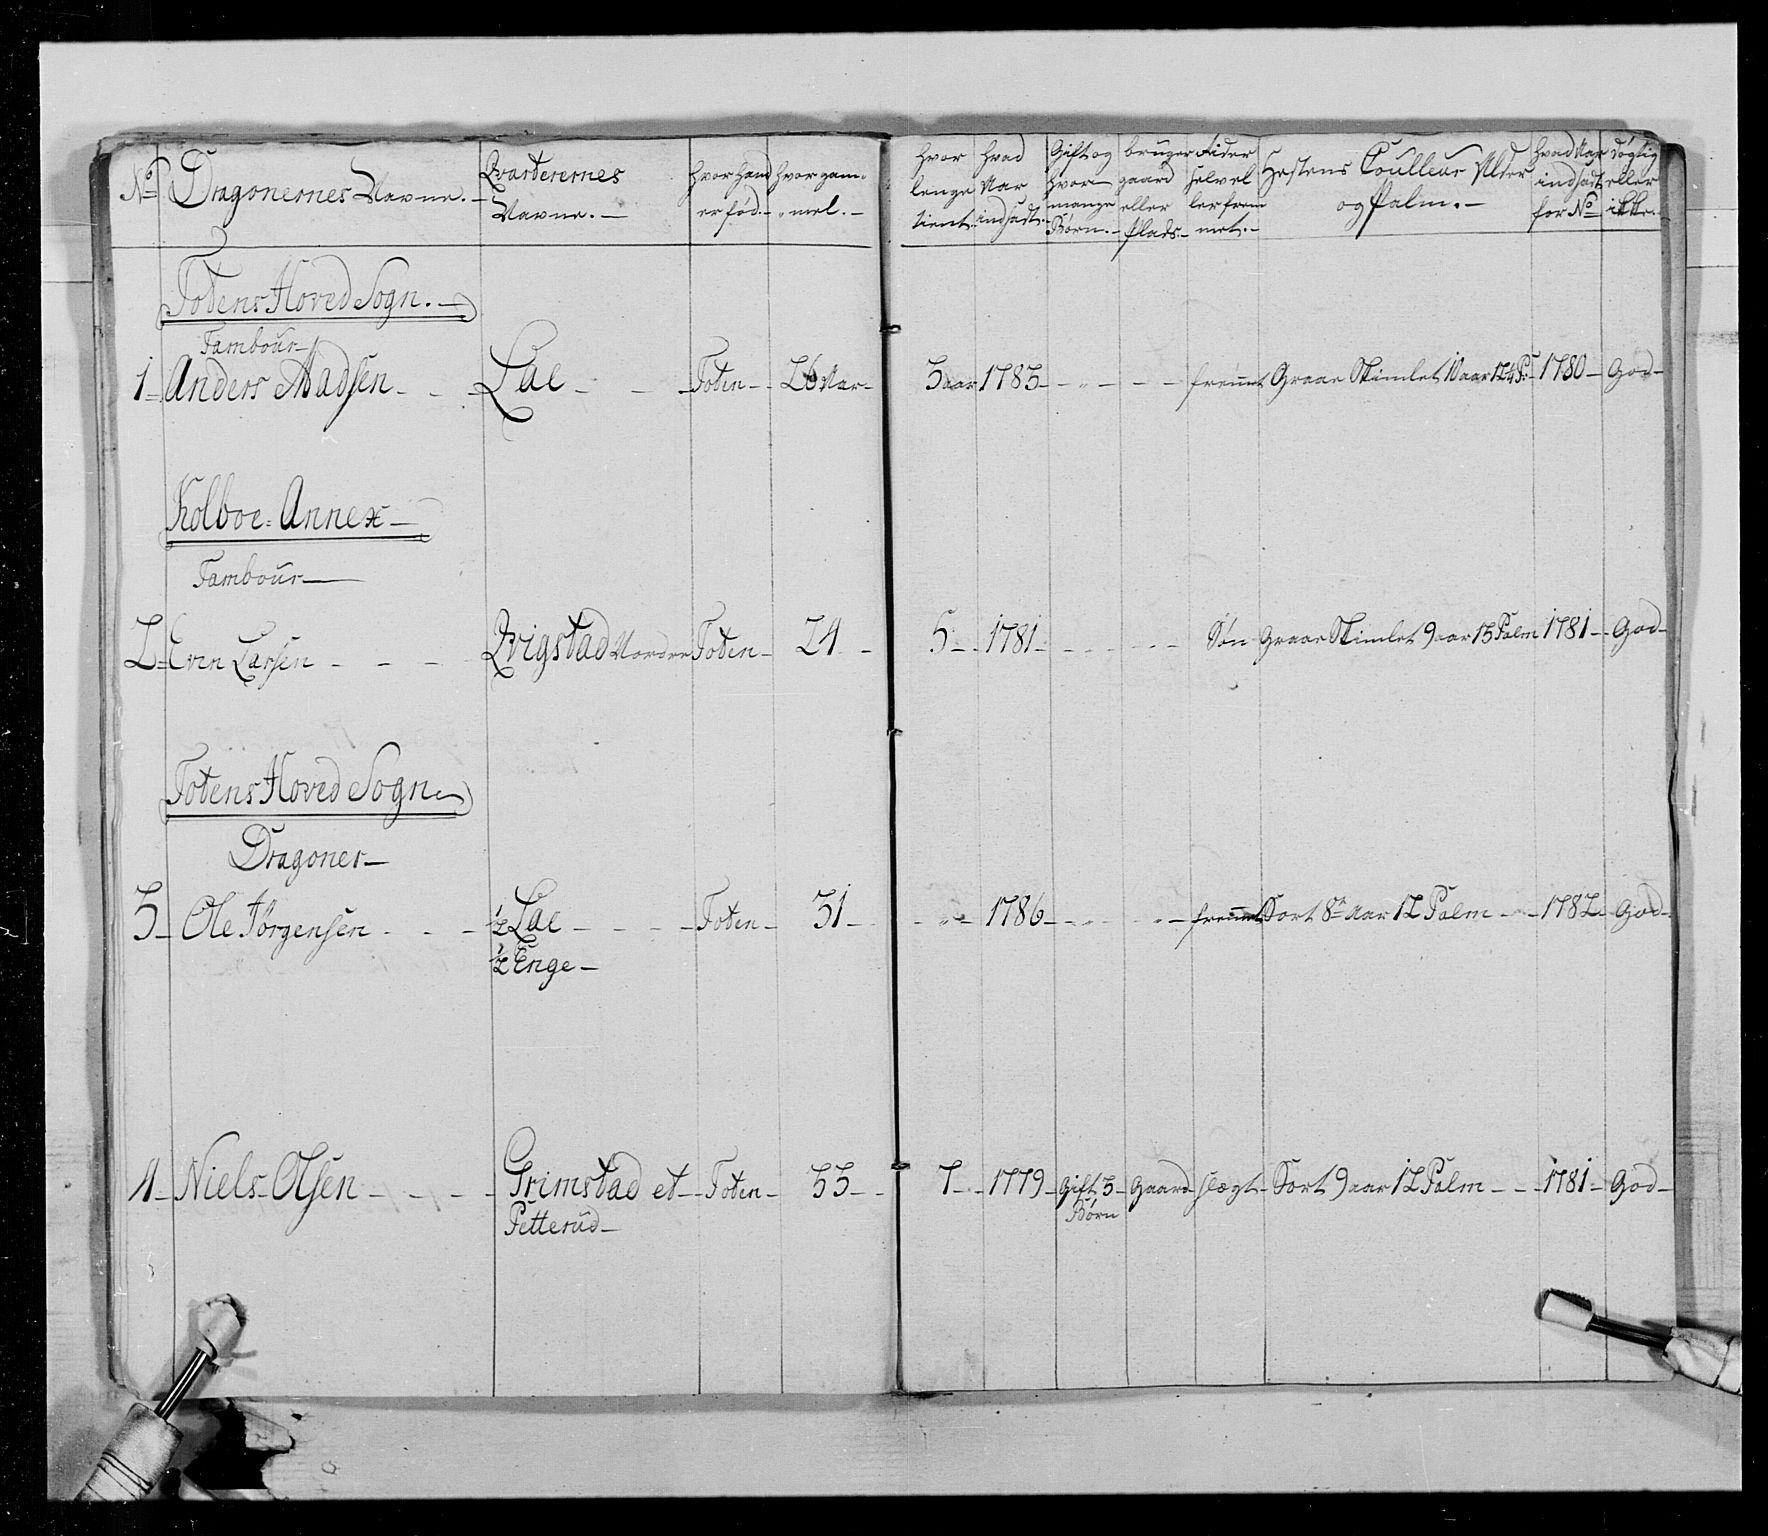 No
Dragonernes Navne.-
Qvarterernes
Navne.-
hvor hand
er fød.-
hvor gam-
mel.-
hvor
lenge
tient.-
hvad
Aar
indsadt.-
Gift og
hvor
mange
Børn.-
bruger
gaard
eller
Plads.-
Fader
selv el
ler frem
met.-
Hestens Coulleur Alder
og Palm.-
hvad Aar
indsadt
for No
døgtig
eller
ikke.-
Totens Hoved Sogn.-
Tambour-
1- Anders Madsen - - - Lae - - - Toten - - 26 Aar - 3 aar 1783 - - - - fremmet Graae Skimlet 10 aar 12 4 P: 1780 - God -
Kolboe = Annex -
Tambour -
2 - Even Larsen - - - Qvigstad Nordre Toten - 24 - - 5 - 1781 - - - - Søn Graae Skimlet 9 aar 13 Palm 1781 - God -
Totens Hoved Sogn
Dragoner -
3 - Ole Jörgensen - - - 1/2 Lae - - - Toten - 31 - - 1786 - - - fremmet Sort 8te Aar 12 Palm - - 1782 - God -
1/2 Enge -
4 - Niels Olsen - - - Grimstad et - Toten - 33 - - 7 - 1779 - Gift 3 - Gaard - slegt - Sort 9 aar 12 Palm - - 1781 - God -
Petterud -
Børn